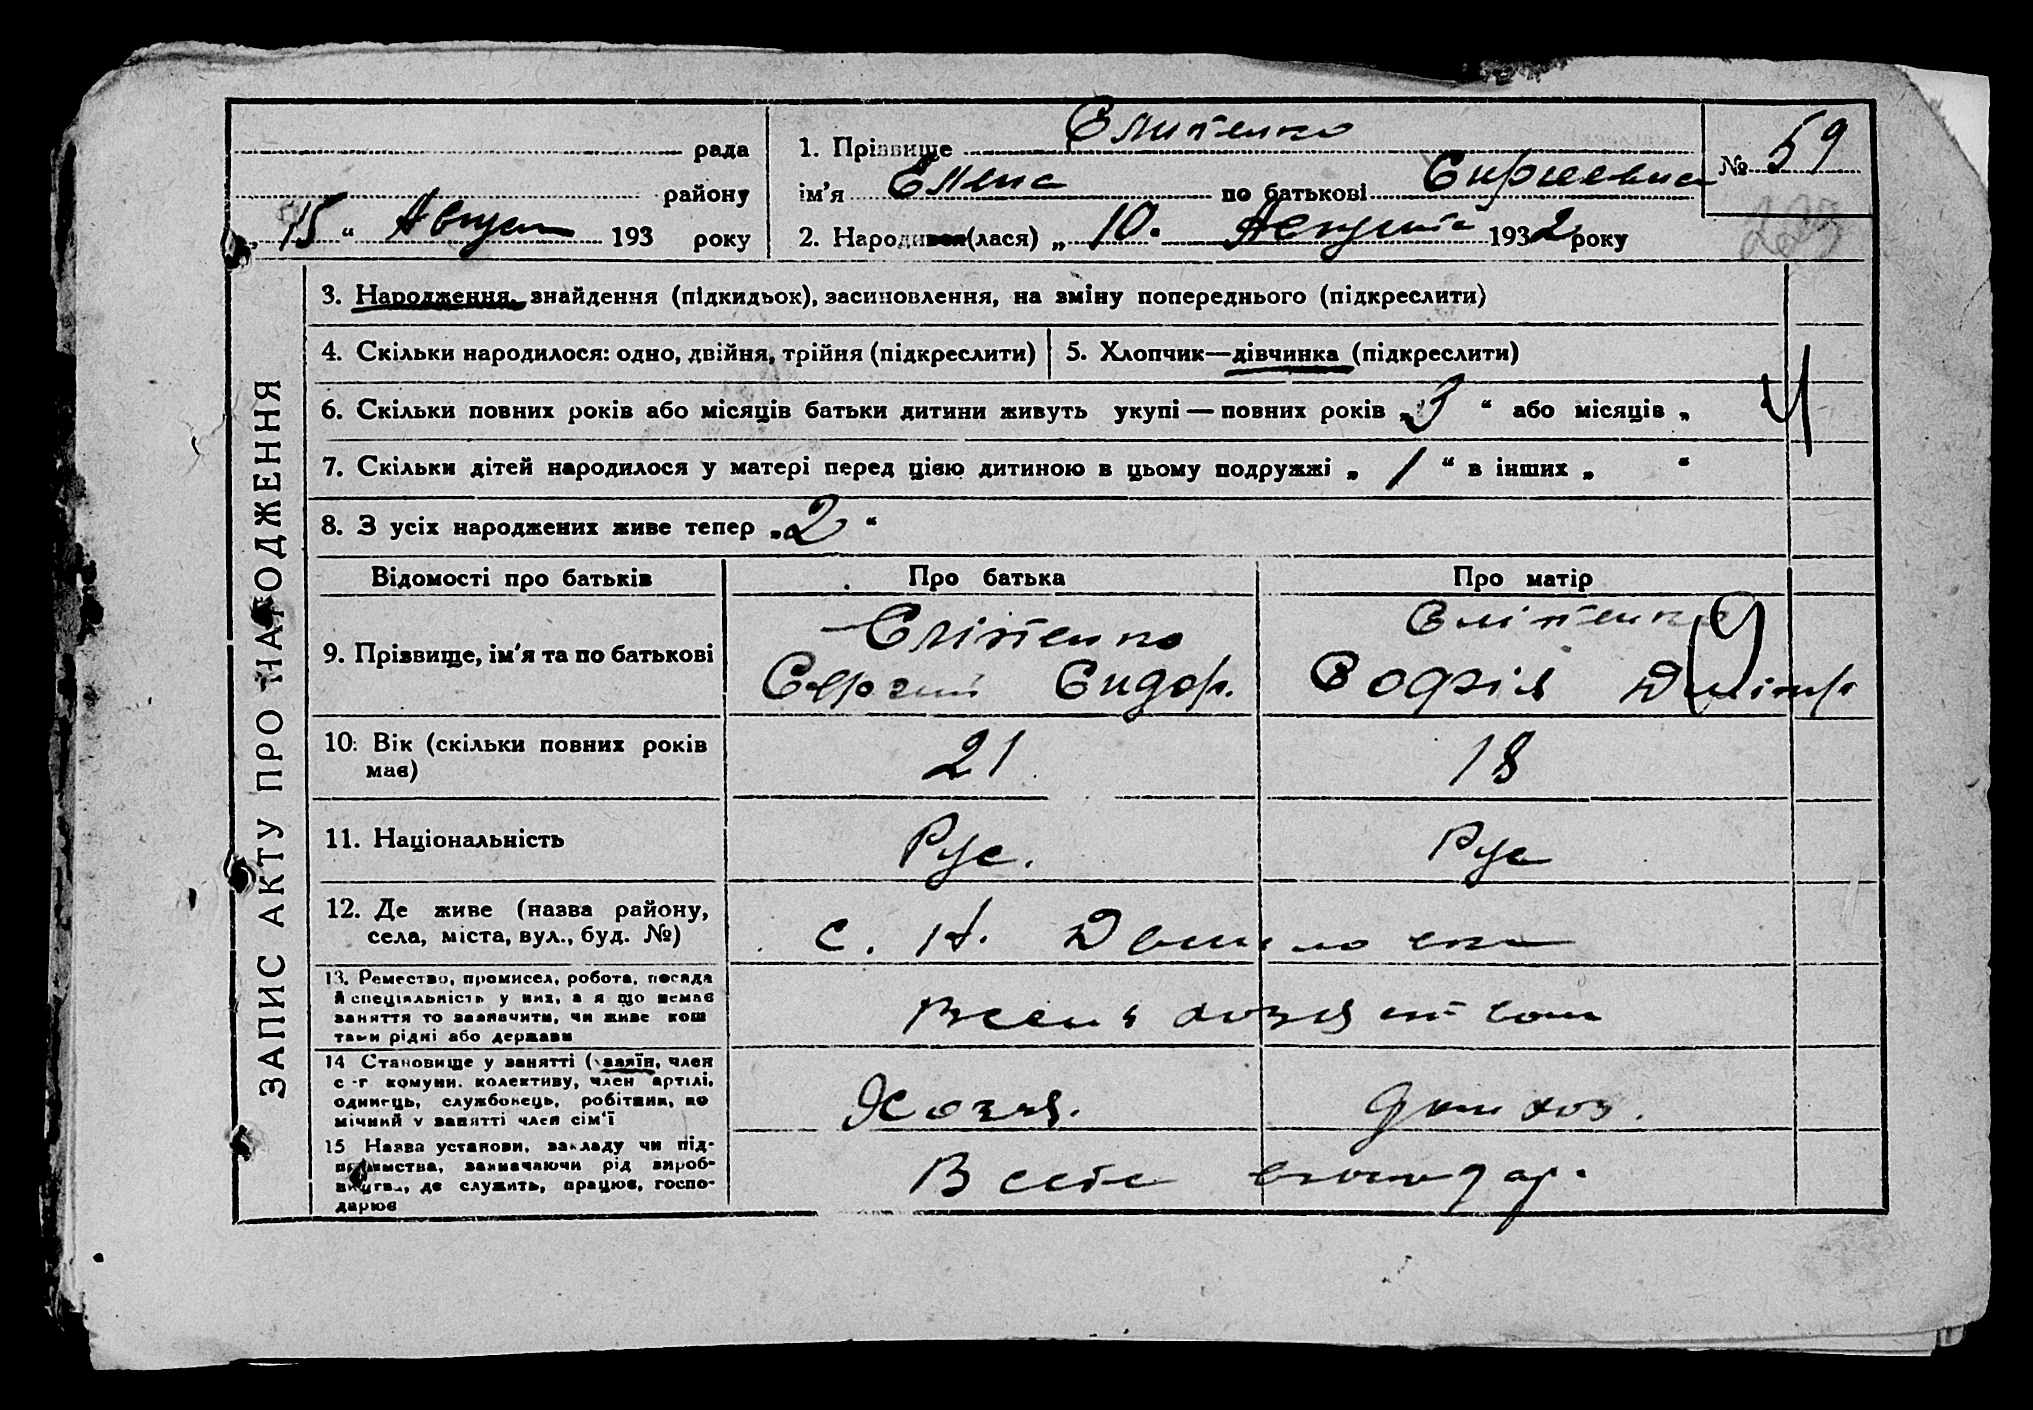 рада
району
„15“ Август 193 року
1. Прізвище
ім'я Елена по батькові
2. Народився(лася) „10. Августа 1932 року
№ 59
223
3. Народження, знайдення (підкидьок), засиновлення, на зміну попереднього (підкреслити)
4. Скільки народилося: одно, двійня, трійня (підкреслити)
5. Хлопчик—дівчинка (підкреслити)
6. Скільки повних років або місяців батьки дитини живуть укупі — повних років „3“ або місяців „
7. Скільки дітей народилося у матері перед цією дитиною в цьому подружжі „1“ в інших „ “
8. З усіх народжених живе тепер „2“
ЗАПИС АКТУ ПРО НАРОДЖЕННЯ
Відомості про батьків
Про батька
Про матір
9. Прізвище, ім'я та по батькові
Єліпенко
Сергій Сидор.
Єліпенко
Софія Дмітр
10. Вік (скільки повних років
має)
21
18
11. Національність
Рус.
Рус
12. Де живе (назва району,
села, міста, вул., буд. №)
с. Н.
13. Ремество, промисел, робота, посада
й спеціяльність у них, а якщо немає
заняття то зазначити, чи живе кош
тами рідні або держави
14 Становище у занятті (хазяїн, член
с-г комуни, колективу, член артілі,
одинець, службовець, робітник, по
мічний у занятті член сім'ї
Хозяя.
15 Назва установи, закладу чи під-
приємства, зазначаючи рід вироб-
ництва, де служить, працює, госпо-
дарює